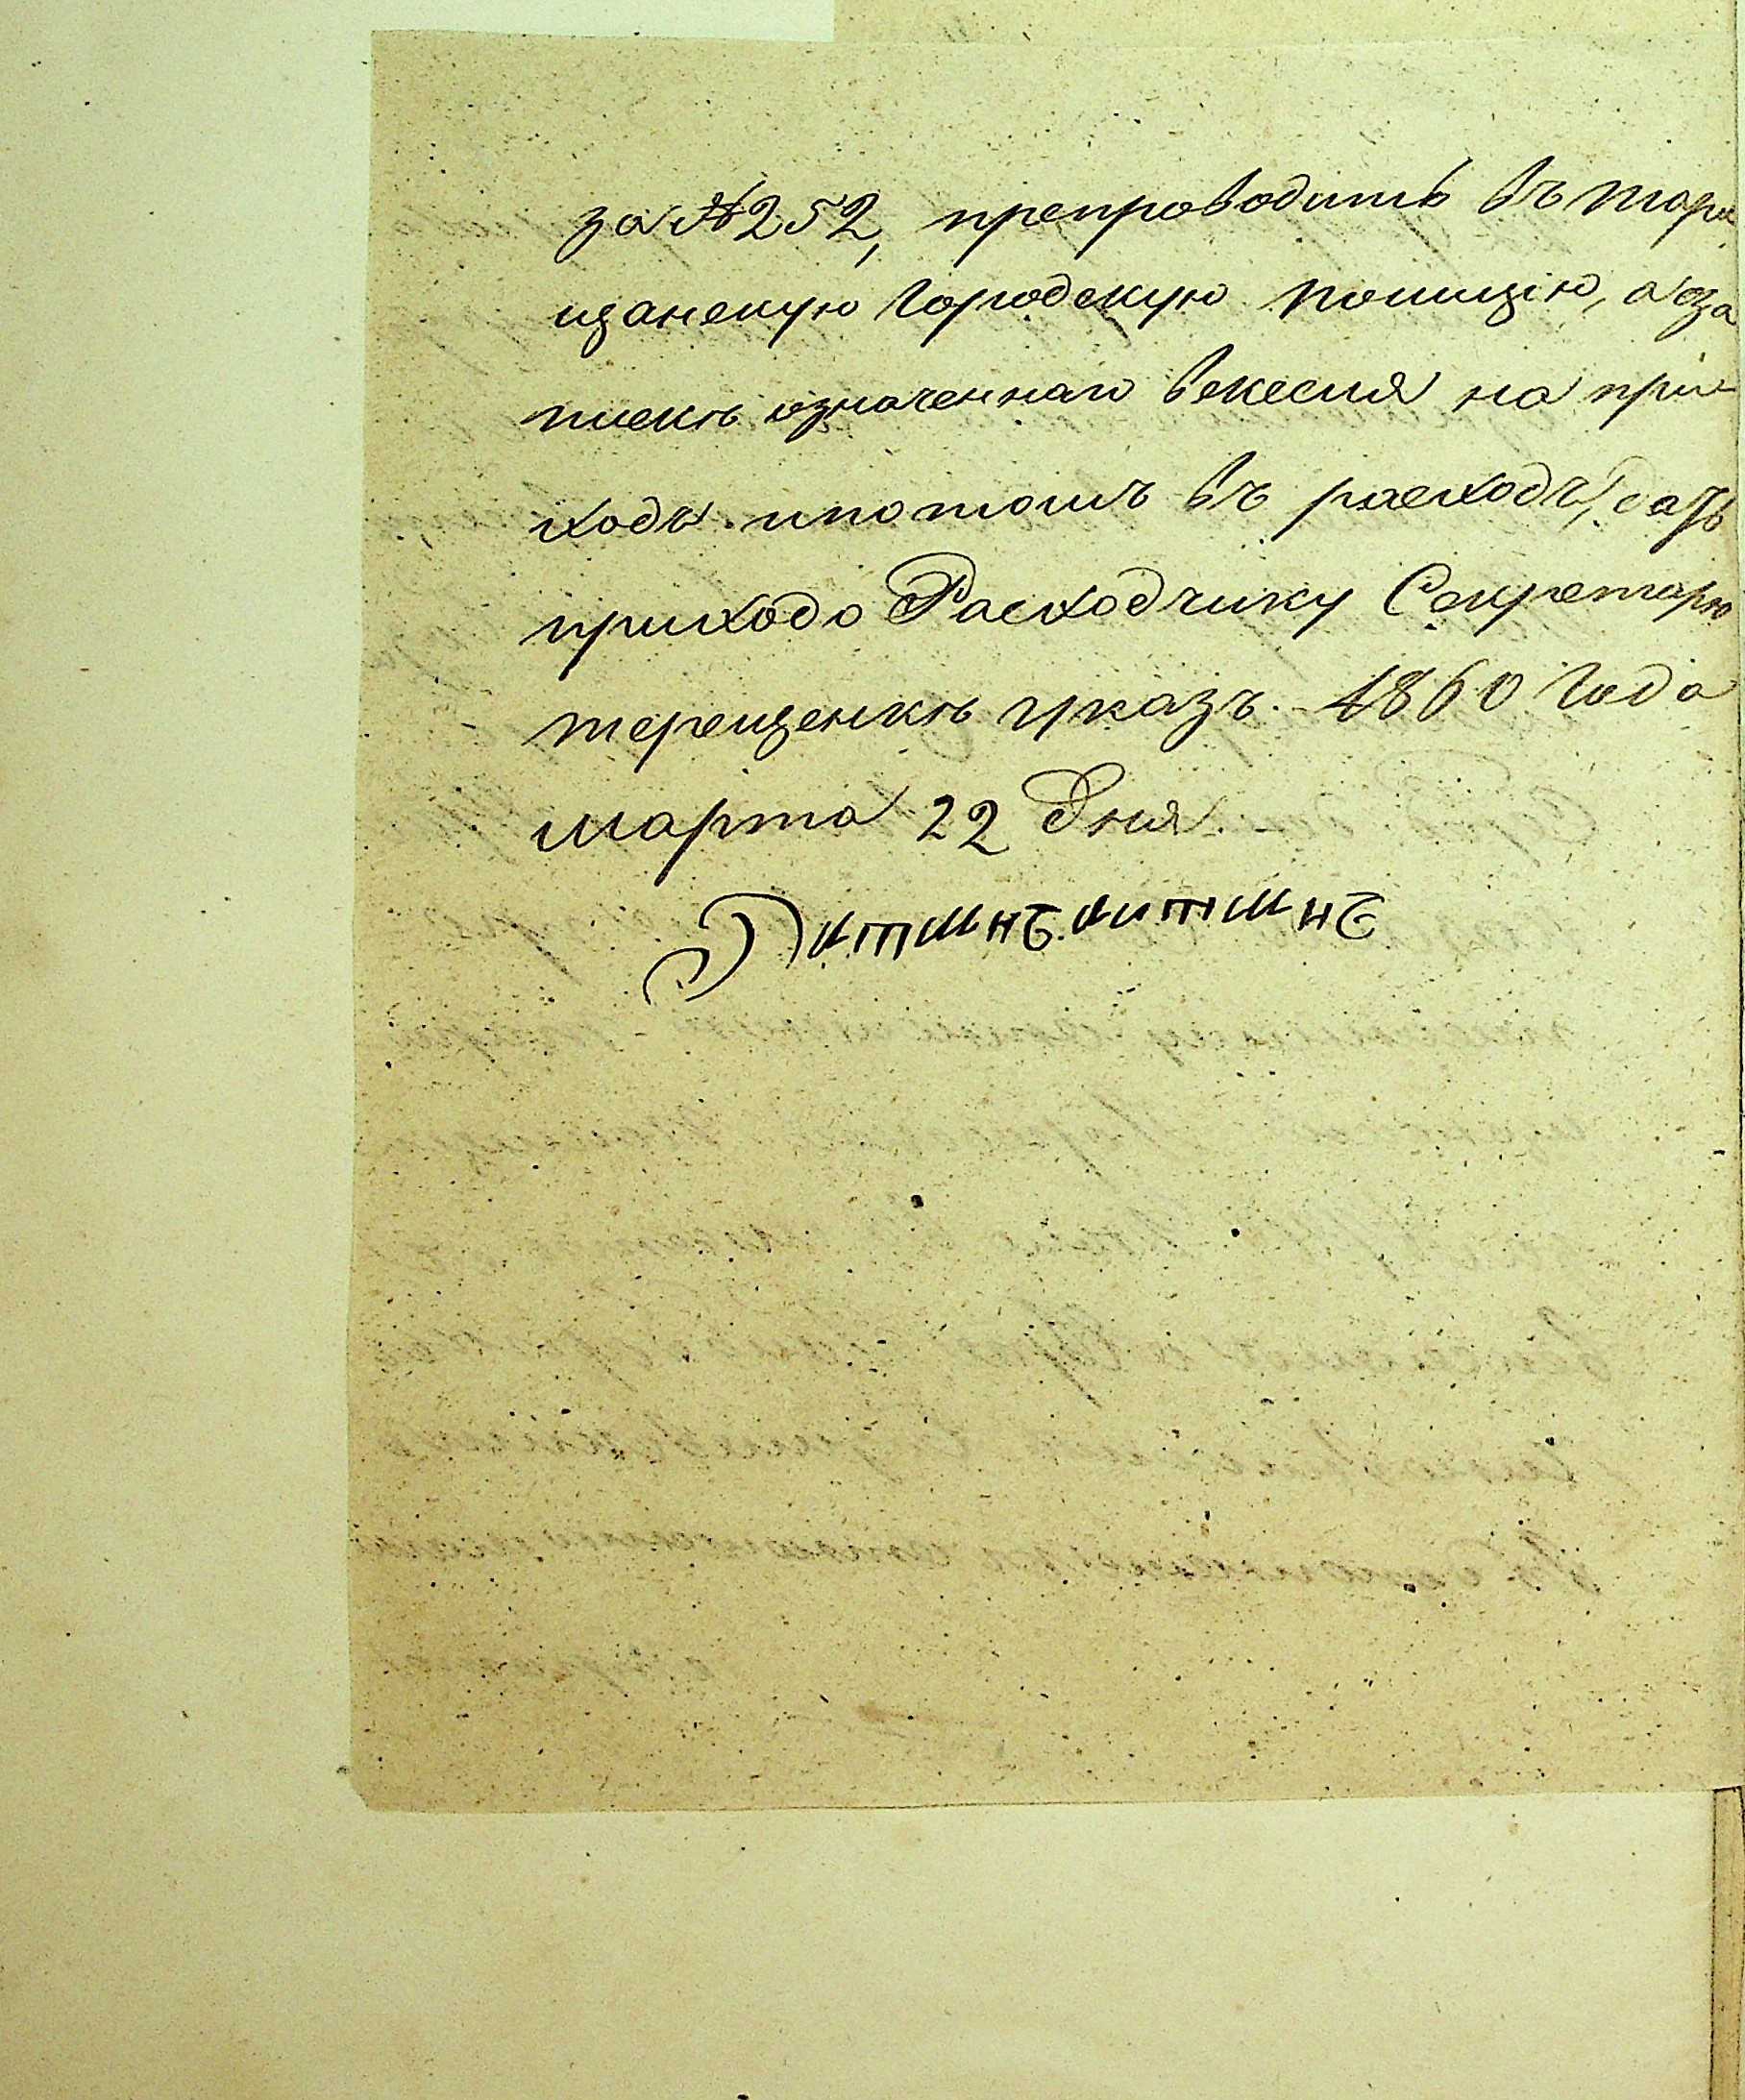 за №252, препроводить въ тара
щанскую городскую полицію, а за
пискѣ означеннаго векселя на при-
ходъ и потомъ въ расходъ, дать
приходо Расходчику Секретарю
терещенкѣ указъ. 1860 года
марта 22 дня.